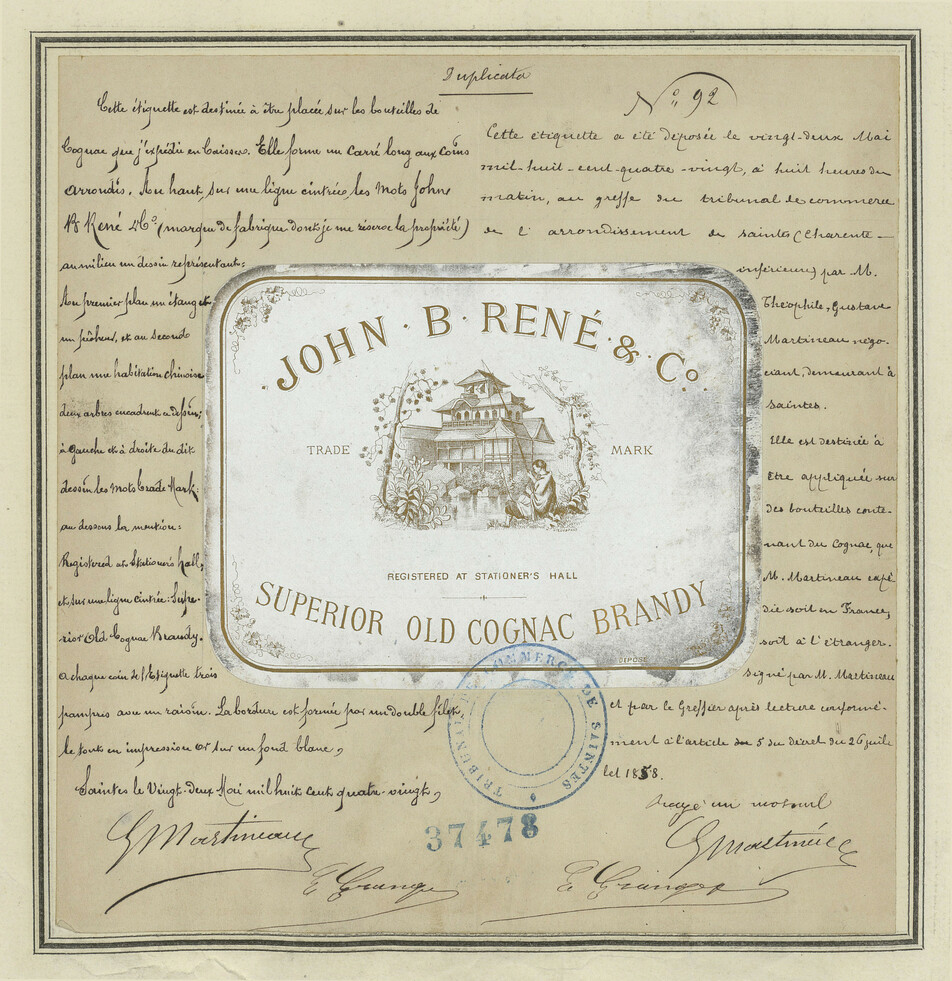 Duplicata
Cette étiquette est destinée à être placée sur les bouteilles de
Cognac que j'expédie en Caisses. Elle forme un Carré long aux Coins
arrondis. Au haut, sur une ligne cintrée, les mots John
B René & Co (marque de fabrique dont je me réserve la propriété)
au milieu un dessin représentant:
Au premier plan un étang et
un pêcheur, et au second
plan une habitation chinoise
deux arbres encadrent ce dessin;
à gauche et à droite du dit
dessin les mots Trade Mark;
au dessous la mention:
Registered at Stationer's hall,
et, sur une ligne cintrée: Supe-
rior Old Cognac Brandy.
a chaque coin de l'Etiquette trois
pampres avec un raisin. La bordure est formée par un double filet,
le tout en impression or sur un fond blanc,
Saintes le Vingt-deux Mai mil huit cent quatre-vingt,
G Martineau
E Granger
No. 92
Cette étiquette a été déposée le vingt-deux Mai
mil-huit-cent-quatre-vingt, à huit heures du
matin, au greffe du tribunal de commerce
de l'arrondissement de Saintes (Charente-
inférieure) par M.
Théophile, Gustave
Martineau négo-
ciant, demeurant à
Saintes.
Elle est destinée à
être appliquée sur
des bouteilles conte-
nant du Cognac, que
M. Martineau expé-
die soit en France,
soit à l'étranger.
Signé par M. Martineau
et par le Greffier après lecture conformé-
ment à l'article 5 du décret du 26 juil-
let 1858.
rayé un mot nul
G Martineau
E Granger
JOHN · B · RENÉ · & · Co.
TRADE MARK
REGISTERED AT STATIONER'S HALL
SUPERIOR OLD COGNAC BRANDY
DÉPOSÉ
TRIBUNAL DE COMMERCE DE SAINTES
37478